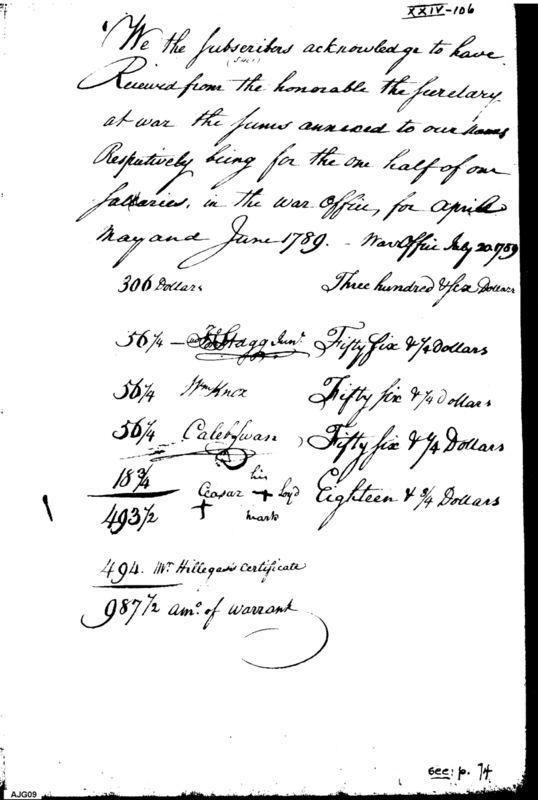 XXIV-106
We the Subscribers acknowledge to have
Received from the honorable the Secretary
at war the sums annexed to our names
Respectively being for the one half of our
Sallaries, in the war Office, for April
May and June 1789. - War Office July 20 1789
306 Dollars Three hundred & six Dollars
56 1/4 - Jn Stagg Junr. Fifty six & 1/4 Dollars
56 1/4 Wm Knox Fifty six & 1/4 Dollars
56 1/4 Caleb Swan Fifty six & 1/4 Dollars
18 3/4 Ceasar his + mark Loyd Eighteen & 3/4 Dollars
493 1/2
494. Mr. Hillegas's Certificate
987 1/2 amo. of warrant
see: p. 74
AJG09